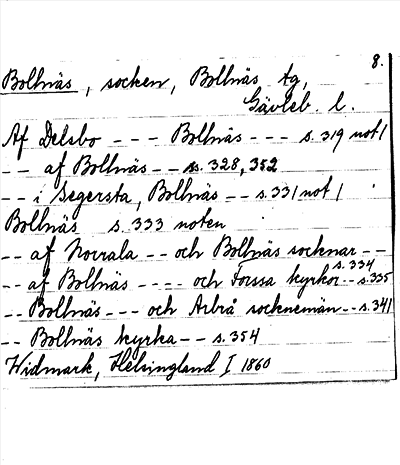 8.
Bollnäs, socken, Bollnäs tg,
Gävleb. l.
Af Delsbo --- Bollnäs --- s. 319 not 1
-- af Bollnäs -- s. 328, 352
-- i Segersta, Bollnäs -- s. 331 not 1
Bollnäs s. 333 noten
-- af Norrala -- och Bollnäs socknar --
s. 334
-- af Bollnäs ---- och Forssa kyrkor -- s. 335
-- Bollnäs --- och Arbrå socknemän -- s. 341
-- Bollnäs kyrka -- s. 354
Widmark, Helsingland I 1860